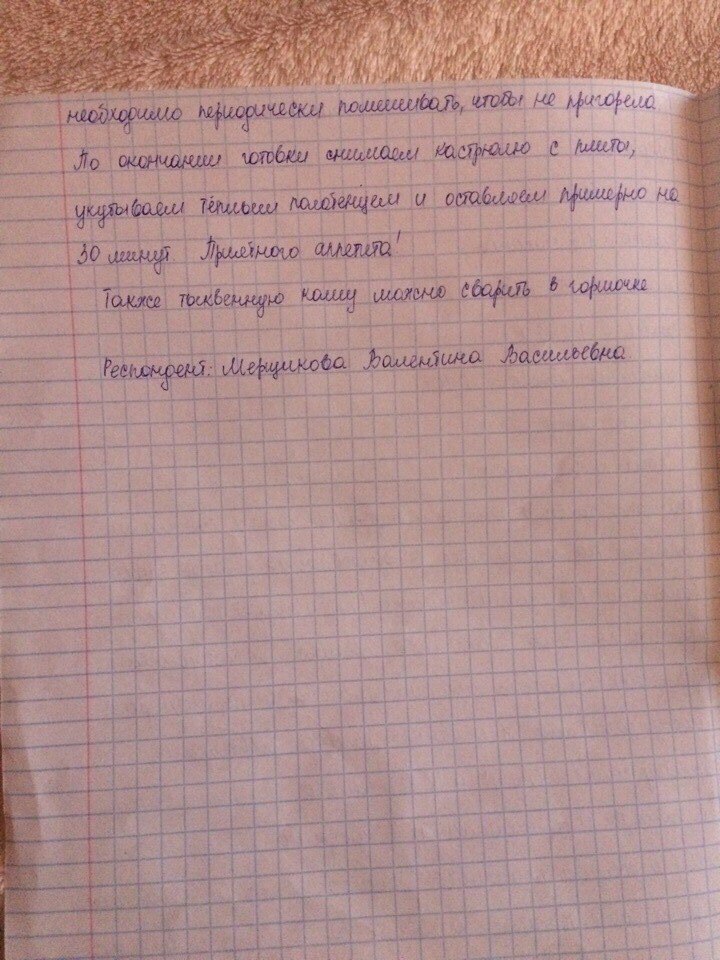 необходимо периодически помешивать, чтобы не пригорела
По окончании готовки снимаем кастрюлю с плиты,
укутываем тёплым полотенцем и оставляем примерно на
30 минут Приятного аппетита!
Также тыквенную кашу можно сварить в горшочке
Респондент: Мерщикова Валентина Васильевна